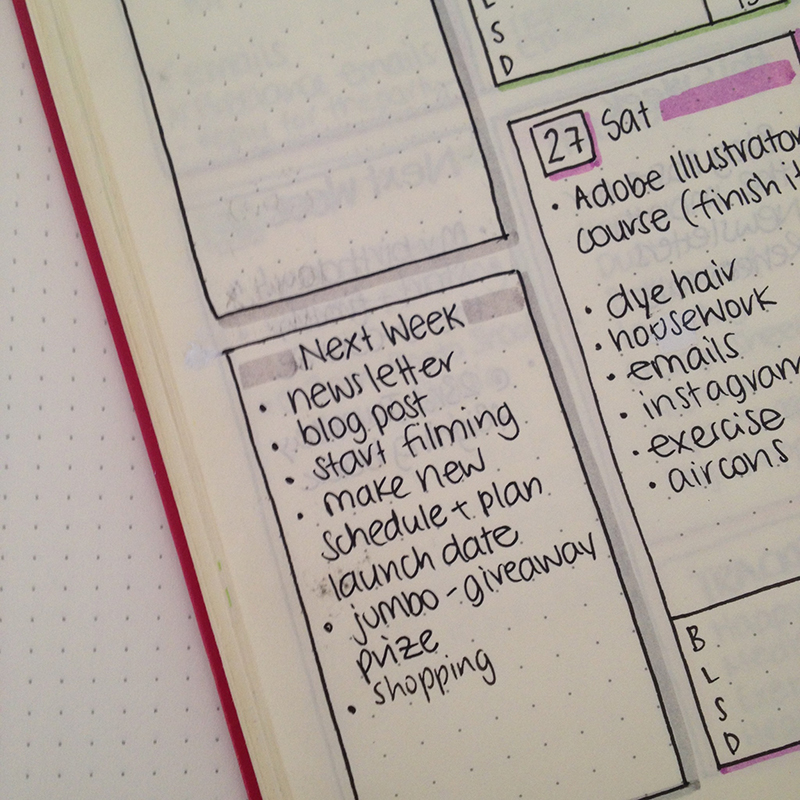 L
S
D
Next Week
• newsletter
• blog post
• start filming
• make new
schedule + plan
launch date
• jumbo-giveaway
prize
• shopping
27 Sat
• Adobe Illustrator
course (finish it
• dye hair
• housework
• emails
• instagram
• exercise
• aircons
B
L
S
D